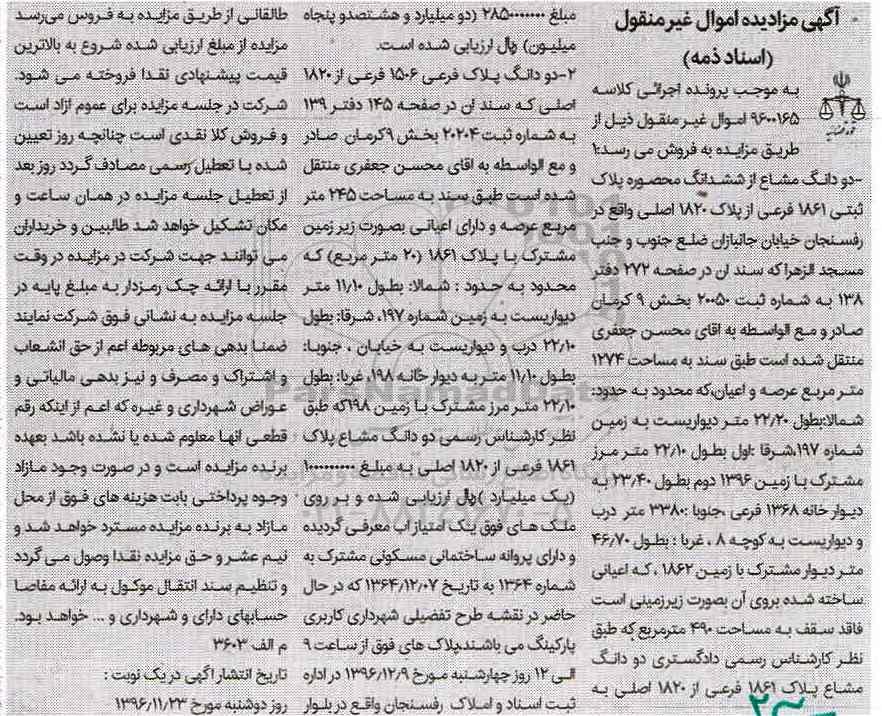 آگهی مزادیده اموال غیر منقول
(اسناد ذمه)
به موجب پرونده اجرائی کلاسه
۹۶۰۰۱۶۵ اموال غیر منقول ذیل از
طریق مزایده به فروش می رسد:۱
-دو دانگ مشاع از ششدانگ محصوره پلاک
ثبتی ۱۸۶۱ فرعی از پلاک ۱۸۲۰ اصلی واقع در
رفسنجان خیابان جانبازان ضلع جنوب و جنب
مسجد الزهرا که سند ان در صفحه ۲۷۲ دفتر
۱۳۸ به شماره ثبت ۲۰۰۵۰ بخش ۹ کرمان
صادر و مع الواسطه به اقای محسن جعفری
منتقل شده است طبق سند به مساحت ۱۲۷۴
متر مربع عرصه و اعیان،که محدود به حدود:
شمالا:بطول ۲۲/۲۰ متر دیواریست به زمین
شماره ۱۹۷،شرقا :اول بطول ۲۲/۱۰ متر مرز
مشترک با زمین ۱۳۹۶ دوم بطول ۲۳/۴۰ به
دیوار خانه ۱۳۶۸ فرعی ،جنوبا :۳۳۸۰ متر درب
و دیواریست به کوچه ۸ ، غربا : بطول ۴۶/۷۰
متر دیوار مشترک با زمین ۱۸۶۲ ، که اعیانی
ساخته شده بروی آن بصورت زیرزمینی است
فاقد سقف به مساحت ۴۹۰ مترمربع که طبق
نظر کارشناس رسمی دادگستری دو دانگ
مشاع پلاک ۱۸۶۱ فرعی از ۱۸۲۰ اصلی به
مبلغ ۲۸۵۰۰۰۰۰۰۰ (دو میلیارد و هشتصدو پنجاه
میلیون) ریال ارزیابی شده است.
۲-دو دانگ پلاک فرعی ۱۵۰۶ فرعی از ۱۸۲۰
اصلی که سند ان در صفحه ۱۴۵ دفتر ۱۳۹
به شماره ثبت ۲۰۲۰۴ بخش ۹کرمان صادر
و مع الواسطه به اقای محسن جعفری منتقل
شده است طبق سند به مساحت ۲۴۵ متر
مربع عرصه و دارای اعیانی بصورت زیر زمین
مشترک با پلاک ۱۸۶۱ (۲۰ متر مربع) که
محدود به حدود : شمالا: بطول ۱۱/۱۰ متر
دیواریست به زمین شماره ۱۹۷، شرقا: بطول
۲۲/۱۰ درب و دیواریست به خیابان ، جنوبا:
بطول ۱۱/۱۰ متر به دیوار خانه ۱۹۸، غربا: بطول
۲۲/۱۰ متر مرز مشترک با زمین ۱۹۸که طبق
نظر کارشناس رسمی دو دانگ مشاع پلاک
۱۸۶۱ فرعی از ۱۸۲۰ اصلی به مبلغ ۱۰۰۰۰۰۰۰۰۰
(یک میلیارد )ریال ارزیابی شده و بر روی
ملک های فوق یک امتیاز اب معرفی گردیده
و دارای پروانه ساختمانی مسکونی مشترک به
شماره ۱۳۶۴ به تاریخ ۱۳۶۴/۱۲/۰۷ که در حال
حاضر در نقشه طرح تفصیلی شهرداری کاربری
پارکینگ می باشند.پلاک های فوق از ساعت ۹
الی ۱۲ روز چهارشنبه مورخ ۱۳۹۶/۱۲/۹ در اداره
ثبت اسناد و املاک رفسنجان واقع در بلوار
طالقانی از طریق مزایده به فروش می‌رسد
مزایده از مبلغ ارزیابی شده شروع به بالاترین
قیمت پیشنهادی نقدا فروخته می شود.
شرکت در جلسه مزایده برای عموم ازاد است
و فروش کلا نقدی است چنانچه روز تعیین
شده با تعطیل رسمی مصادف گردد روز بعد
از تعطیل جلسه مزایده در همان ساعت و
مکان تشکیل خواهد شد طالبین و خریداران
می توانند جهت شرکت در مزایده در وقت
مقرر با ارائه چک رمزدار به مبلغ پایه در
جلسه مزایده به نشانی فوق شرکت نمایند
ضمنا بدهی های مربوطه اعم از حق انشعاب
و اشتراک و مصرف و نیز بدهی مالیاتی و
عوراض شهرداری و غیره که اعم از اینکه رقم
قطعی انها معلوم شده یا نشده باشد بعهده
برنده مزایده است و در صورت وجود مازاد
وجوه پرداختی بابت هزینه های فوق از محل
مازاد به برنده مزایده مسترد خواهد شد و
نیم عشر و حق مزایده نقدا وصول می گردد
و تنظیم سند انتقال موکول به ارائه مفاصا
حسابهای دارای و شهرداری و ... خواهد بود.
م الف ۳۶۰۳
تاریخ انتشار اگهی در یک نوبت :
روز دوشنبه مورخ ۱۳۹۶/۱۱/۲۳